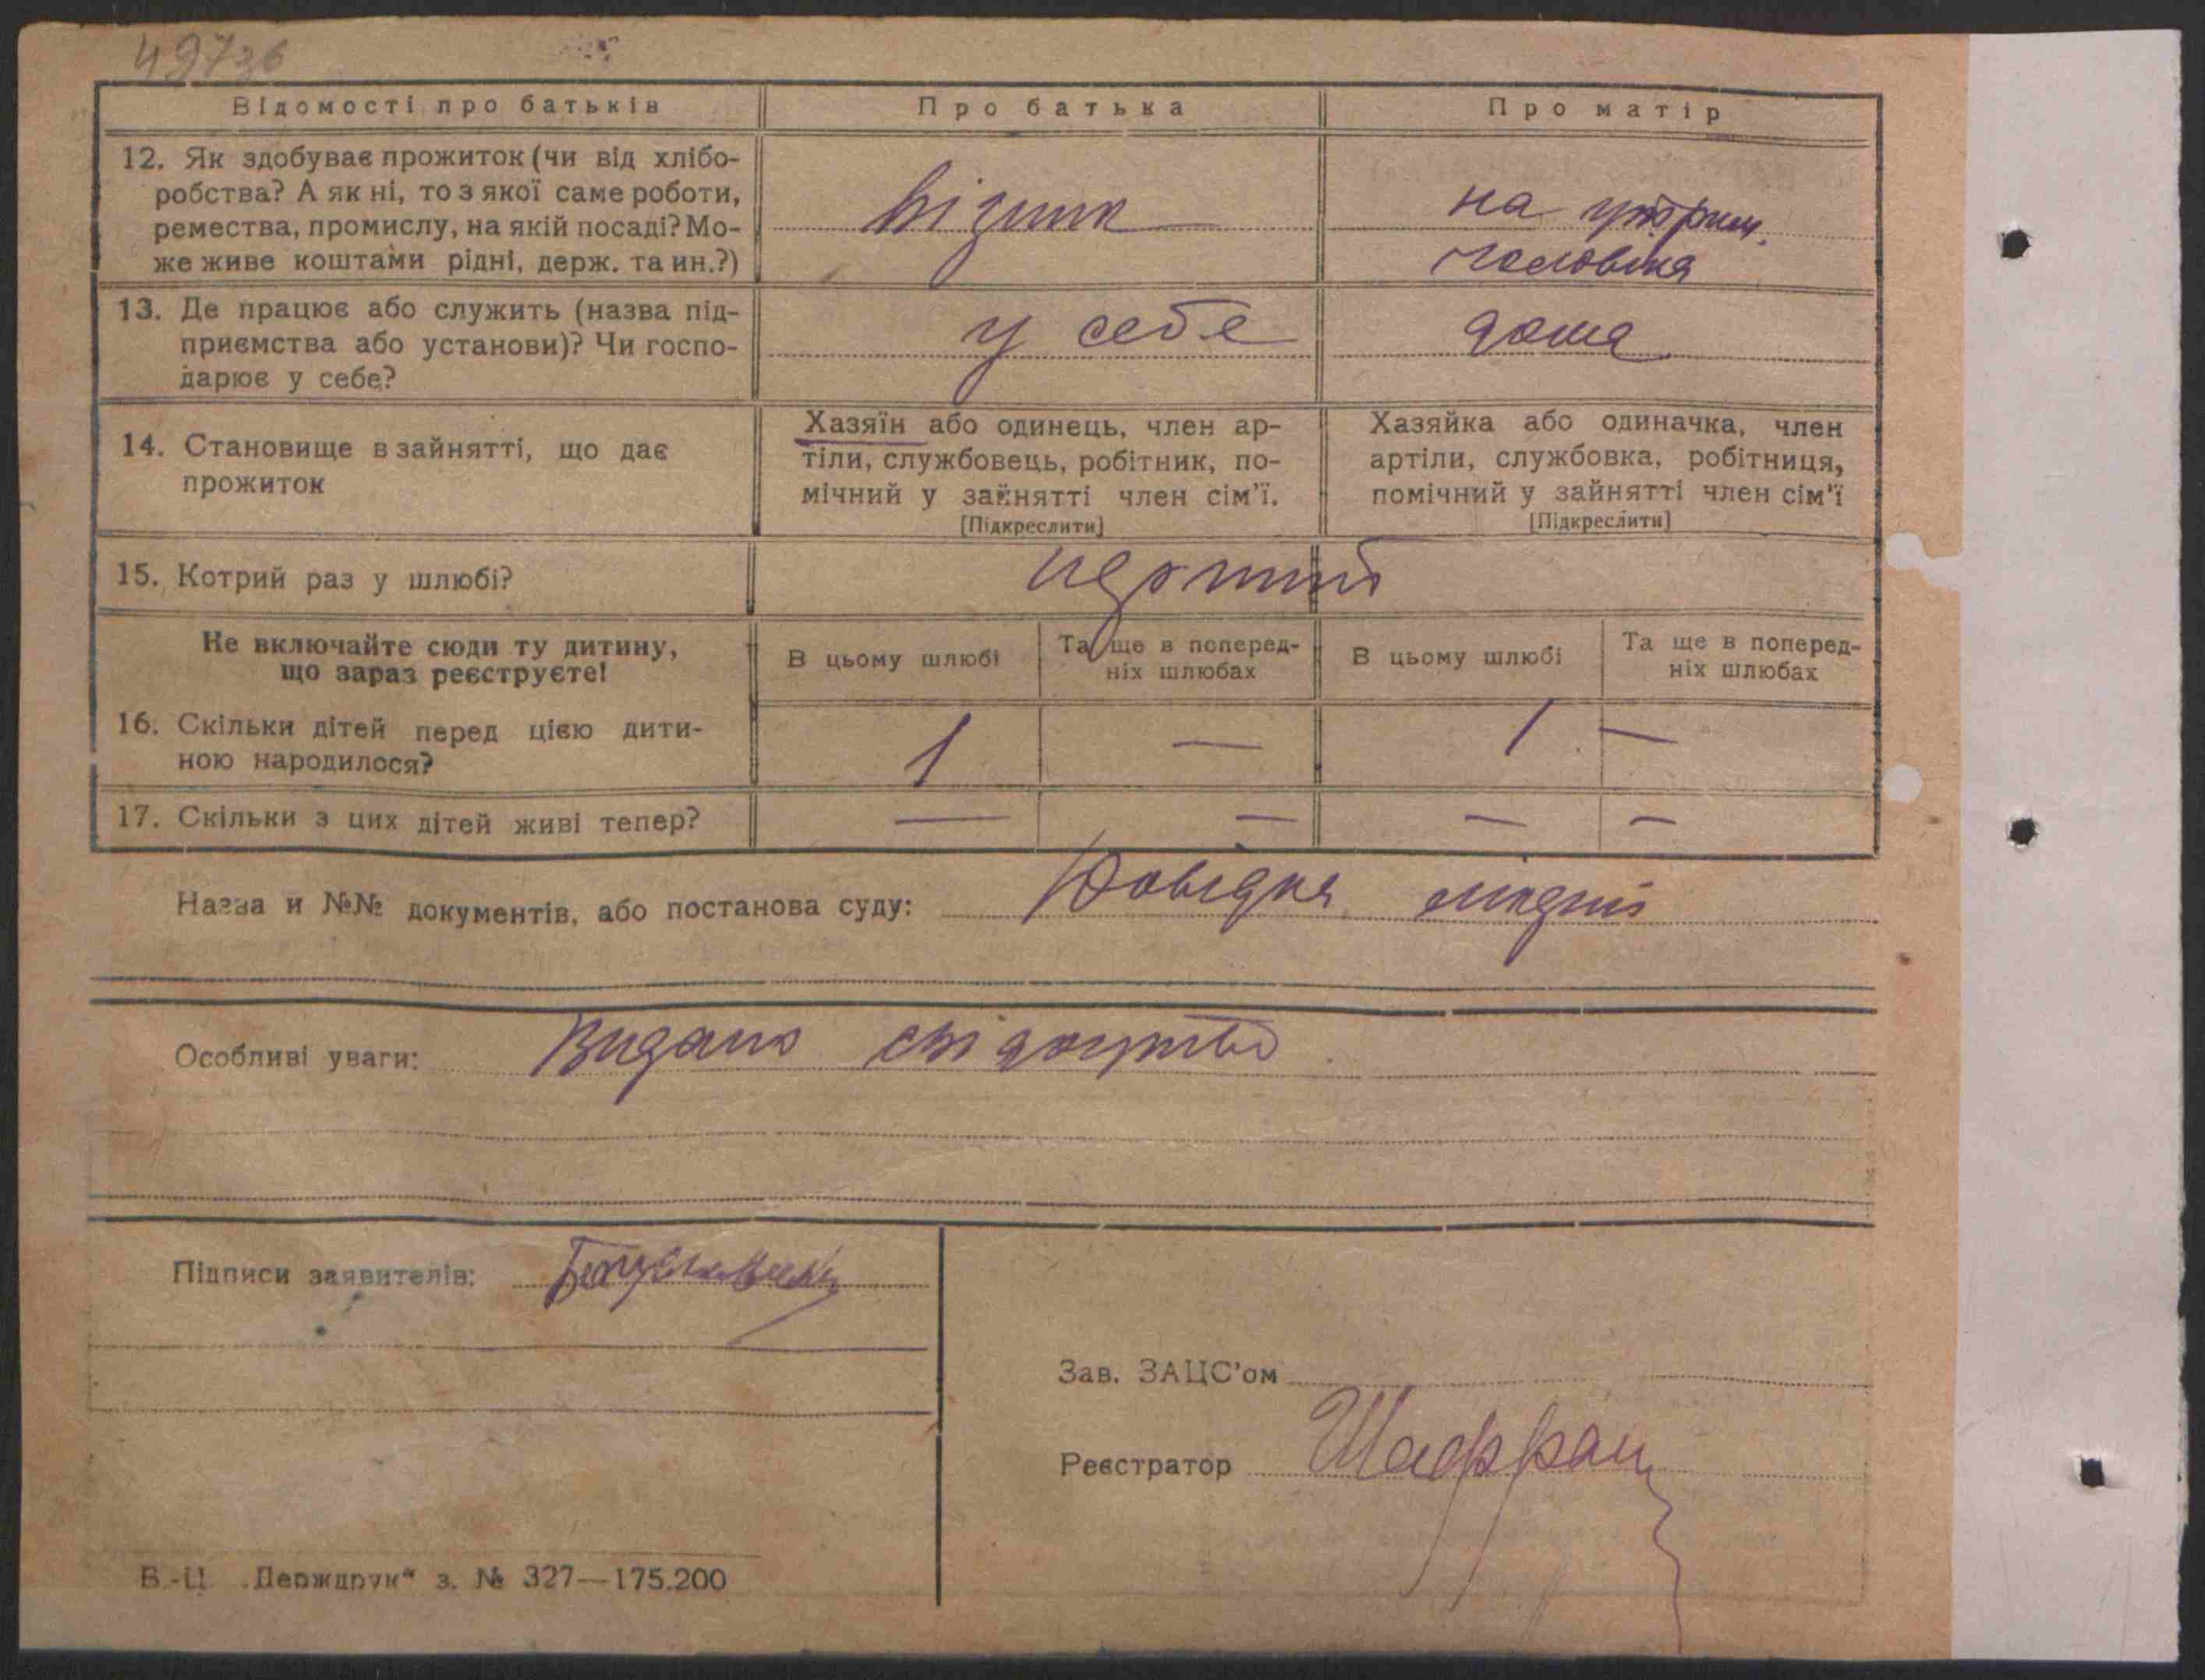 49736
Відомості про батьків
Про батька
Про матір
12. Як здобуває прожиток (чи від хлібо-
робства? А як ні, то з якої саме роботи,
ремества, промислу, на якій посаді? Мо-
же живе коштами рідні, держ. та ин.?)
візник
на утрим.
чоловіка
13. Де працює або служить (назва під-
приємства або установи)? Чи госпо-
дарює у себе?
у себе
дома
14. Становище в зайнятті, що дає
прожиток
Хазяїн або одинець, член ар-
тіли, службовець, робітник, по-
мічний у зайнятті член сім'ї.
[Підкреслити]
Хазяйка або одиначка, член
артіли, службовка, робітниця,
помічний у зайнятті член сім'ї
[Підкреслити]
15. Котрий раз у шлюбі?
перший
Не включайте сюди ту дитину,
що зараз реєструєте!
В цьому шлюбі
Та ще в поперед-
ніх шлюбах
В цьому шлюбі
Та ще в поперед-
ніх шлюбах
16. Скільки дітей перед цією дити-
ною народилося?
1 — 1 —
17. Скільки з цих дітей живі тепер?
— — — —
Назва и №№ документів, або постанова суду: Довідка
Особливі уваги: Видано свідоцтво
Підписи заявителів:
Зав. ЗАЦС'ом
Реєстратор Шафран
В.-Ц. „Держдрук“ з. № 327—175.200